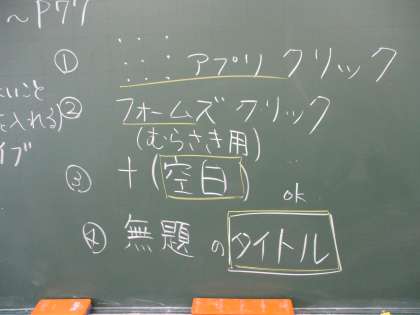 ～P77
① アプリ クリック
いこと
② フォームズ クリック
を入れる)
(むらさき用)
イブ
③ +(空白)
ok
④ 無題 の タイトル